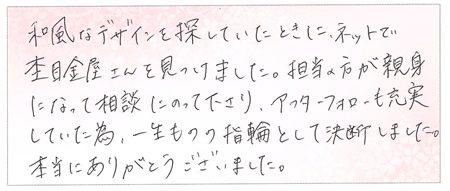 和風なデザインを探していたときに、ネットで
杢目金屋さんを見つけました。担当の方が親身
になって相談にのって下さり、アフターフォローも充実
していた為、一生ものの指輪として決断しました。
本当にありがとうございました。